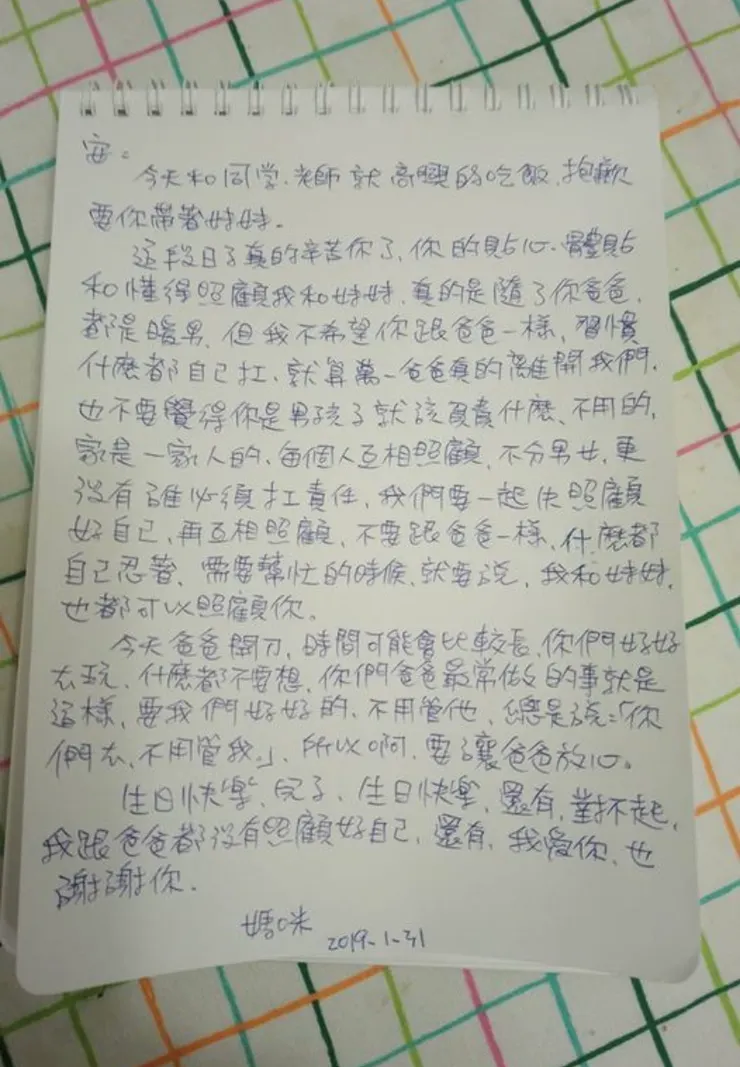 安。
今天和同学、老師就高興的吃飯、抱歉
要你帶著妹妹。
這段日子真的辛苦你了、你的貼心、體貼
和懂得照顧我和妹妹、真的是隨了你爸爸、
都是暖男、但我不希望你跟爸爸一樣、習慣
什麼都自己扛、就算萬一爸爸真的離開我們、
也不要覺得你是男孩子就該負責什麼、不用的、
家是一家人的、每個人互相照顧、不分男女、更
沒有誰必須扛責任、我們要一起先照顧
好自己、再互相照顧、不要跟爸爸一樣、什麼都
自己忍著、需要幫忙的時候、就要說、我和妹妹、
也都可以照顧你。
今天爸爸開刀、時間可能會比較長、你們好好
去玩、什麼都不要想、你們爸爸最常做的事就是
這樣、要我們好好的、不用管他、總是說:「你
們去、不用管我」、所以啊、要讓爸爸放心。
生日快樂、兒子、生日快樂、還有、對不起、
我跟爸爸都沒有照顧好自己、還有、我愛你、也
謝謝你、
媽咪 2019-1-31